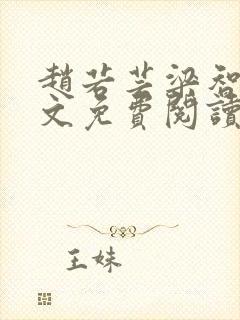 趙若芸梁智
文免費閱讀
王妹